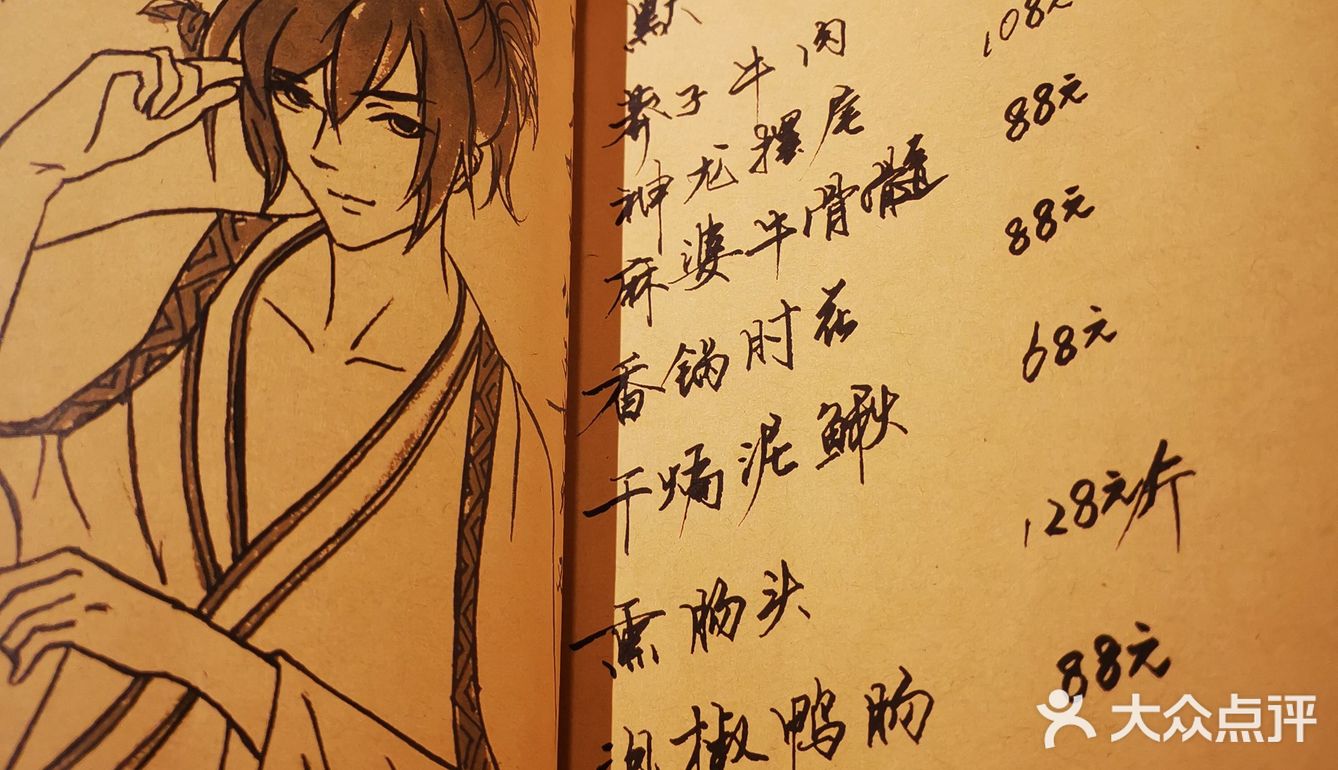 子牛肉
神龙摆尾 108元
麻婆牛骨髓 88元
香锅肘花 88元
干煸泥鳅 68元
熏肠头 128元/斤
泡椒鸭肠 88元
大众点评